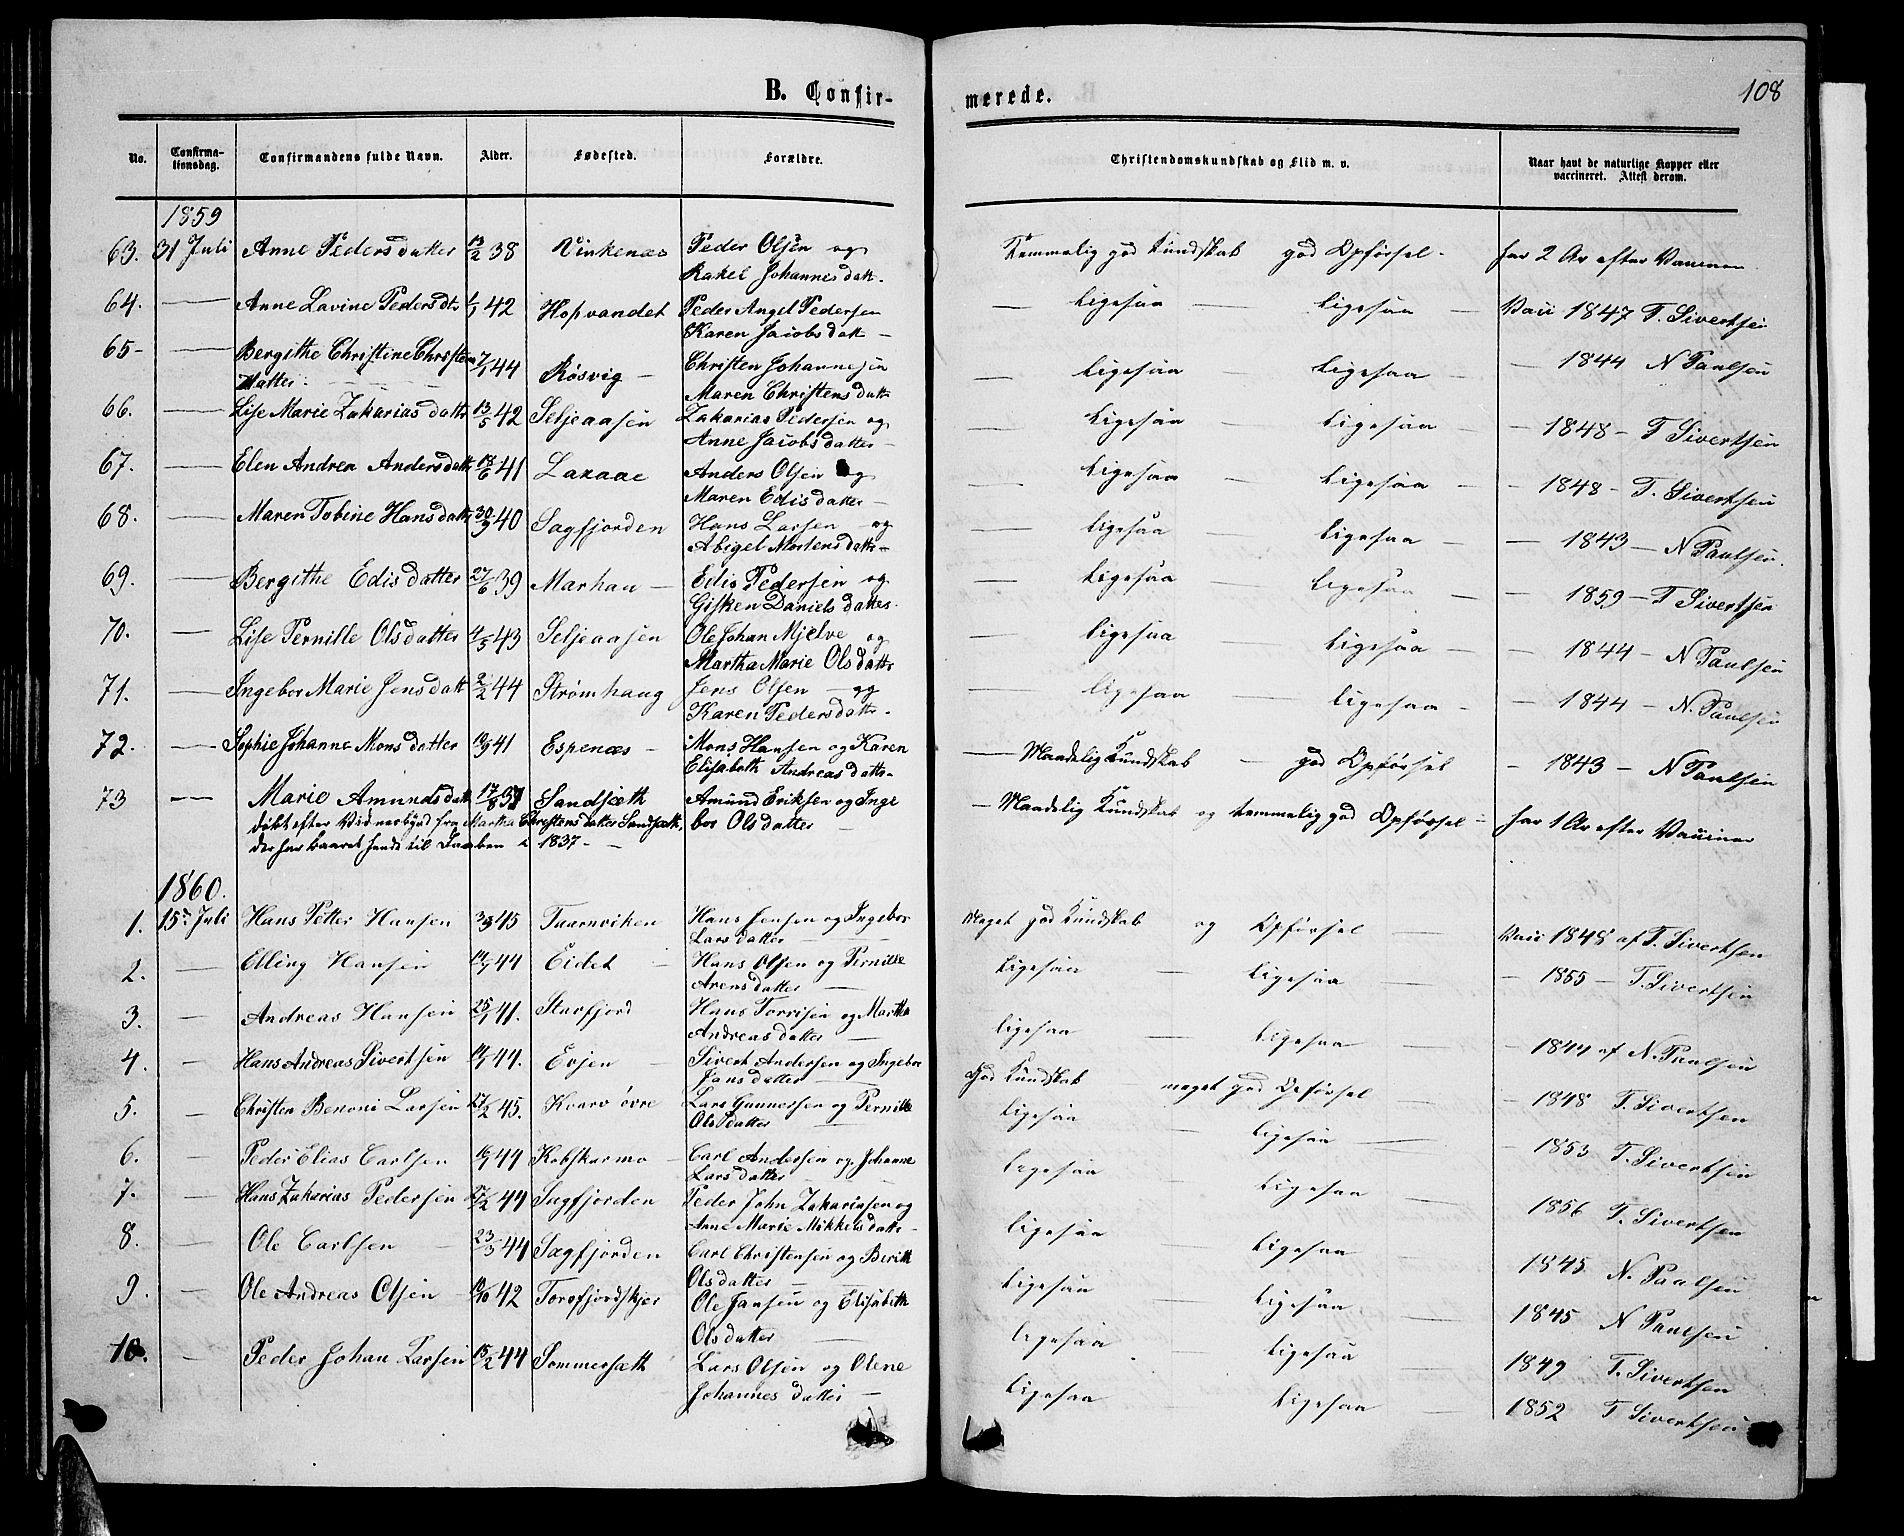 B. Confir-
merede.
108
No.
Confirma-
tionsdag.
Confirmandens fulde Navn.
Alder.
Fødested.
Forældre.
Christendomskundskab og Flid m. v.
Naar havt de naturlige Kopper eller
vaccineret. Attest derom.
1859
63. 31 Juli Anne Pedersdatter 13/2 38 Vinkenæs Peder Olsen og Temmelig god Kundskab god Opførsel - har 2 Ar efter Vaccinen
Rakel Johannesdatt.
64. — Anne Lavine Pedersdtr 42 Hopvandet Peder Angel Pedersen — Ligesaa — Ligesaa — Vacc 1847 T. Sivertsen
Karen Jacobsdatt —
65 - — Bergithe Christine Christens 44 Røsvig — Christen Johannesen — Ligesaa — Ligesaa — — 1844 N Paulsen
datter Maren Christensdatt
66. — Lise Marie Zakariasdattr 13/5 42 Seljeaasen Zakarias Pedersen og — Ligesaa — Ligesaa — — 1848 - T Sivertsen
Anne Jacobsdatter —
67. — Elen Andrea Andersdatt 18/6 41 Laxaae Anders Olsen og — Ligesaa — Ligesaa — — 1848 - T. Sivertsen
Maren Edisdatter —
68. — Maren Tobine Hansdattr 30/9 40 Sagfjorden Hans Larsen — og — Ligesaa — Ligesaa — — 1843 — N Paulsen.
Abigel Mortensdattr —
69. — Bergithe Edisdatter 27/6 39 Marhau — Edis Pedersen og — Ligesaa — Ligesaa — — 1859 — T Sivertsen
Gisken Danielsdatter.
70. — Lise Pernille Olsdatter 4/5 43 Seljeaasen Ole Johan Mjelve og — Ligesaa — Ligesaa — — 1844 — N Paulsen
Martha Marie Olsdattr
71. — Ingebor Marie Jensdatt 2/2 44 Strømhaug Jens Olsen — og — Ligesaa — Ligesaa — — 1844 — N. Paulsen
Karen Pedersdattr.
72. — Sophie Johanna Monsdatter 10/9 41 Espenæs — Mons Hansen og Karen — Maadelig Kundskab — god Opførsel — 1843 — N Paulsen
Elisabeth Andreasdattr.
73 — Marie Amundsdatt 17/8 Sandsæth Amund Eriksen og Inge — Maadelig Kundskab og temmelig god Opførsel — har 1 Ar efter Vaccinen
Martha Christensdatter Sandsæth, bor Olsdatter —
der har baaret hende til Daaben i 1837 - —
1860.
1. 15de Juli Hans Petter Hansen 45 Taarnviken Hans Jensen og Ingebor Meget god Kundskab og Opførsel — Vacc 1848 af T. Sivertsen
Larsdatter —
2. — Elling Hansen 44 Eidet — Hans Olsen og Pernille Ligesaa — Ligesaa — — 1855 — T. Sivertsen
Arensdatter —
3. — Andreas Hansen 41. Storfjord Hans Torrisen og Martha Ligesaa — Ligesaa — — 1844 af N. Paulsen
Andreasdatter —
4. — Hans Andreas Sivertsen 44. Evjen — Sivert Andersen og Ingebor God Kundskab meget god Opførsel — — 1848 T. Sivertsen
Jansdatter —
5. — Christen Benoni Larsen 27/2 45. Kvarv øvre Lars Gunnersen og Pernille Ligesaa — Ligesaa — — 1853 T. Sivertsen
Olsdatter —
6. — Peder Elias Carlsen 44 Kobskarmo — Carl Andersen og Johanne Ligesaa — Ligesaa — 1856 T. Sivertsen
Larsdatter —
7. — Hans Zakarias Pedersen 44 Sagfjorden Peder John Zakariasen og Ligesaa — Ligesaa — 1845 N. Paulsen
Anne Marie Mikkelsdattr —
8. — Ole Carlsen — 23/3 44 Sagfjorden Carl Christensen og Berith Ligesaa — Ligesaa — 1845 N Paulsen
Olsdatter —
9. — Ole Andreas Olsen — 42 Torsfjordskjer Ole Jansen og Elisabeth Ligesaa — Ligesaa — 1849 T. Sivertsen
Olsdatter —
10. — Peder Johan Larsen 15/2 44 Sommersæth Lars Olsen og Olene Ligesaa — Ligesaa — 1852 T Sivertsen
Johannesdatter —